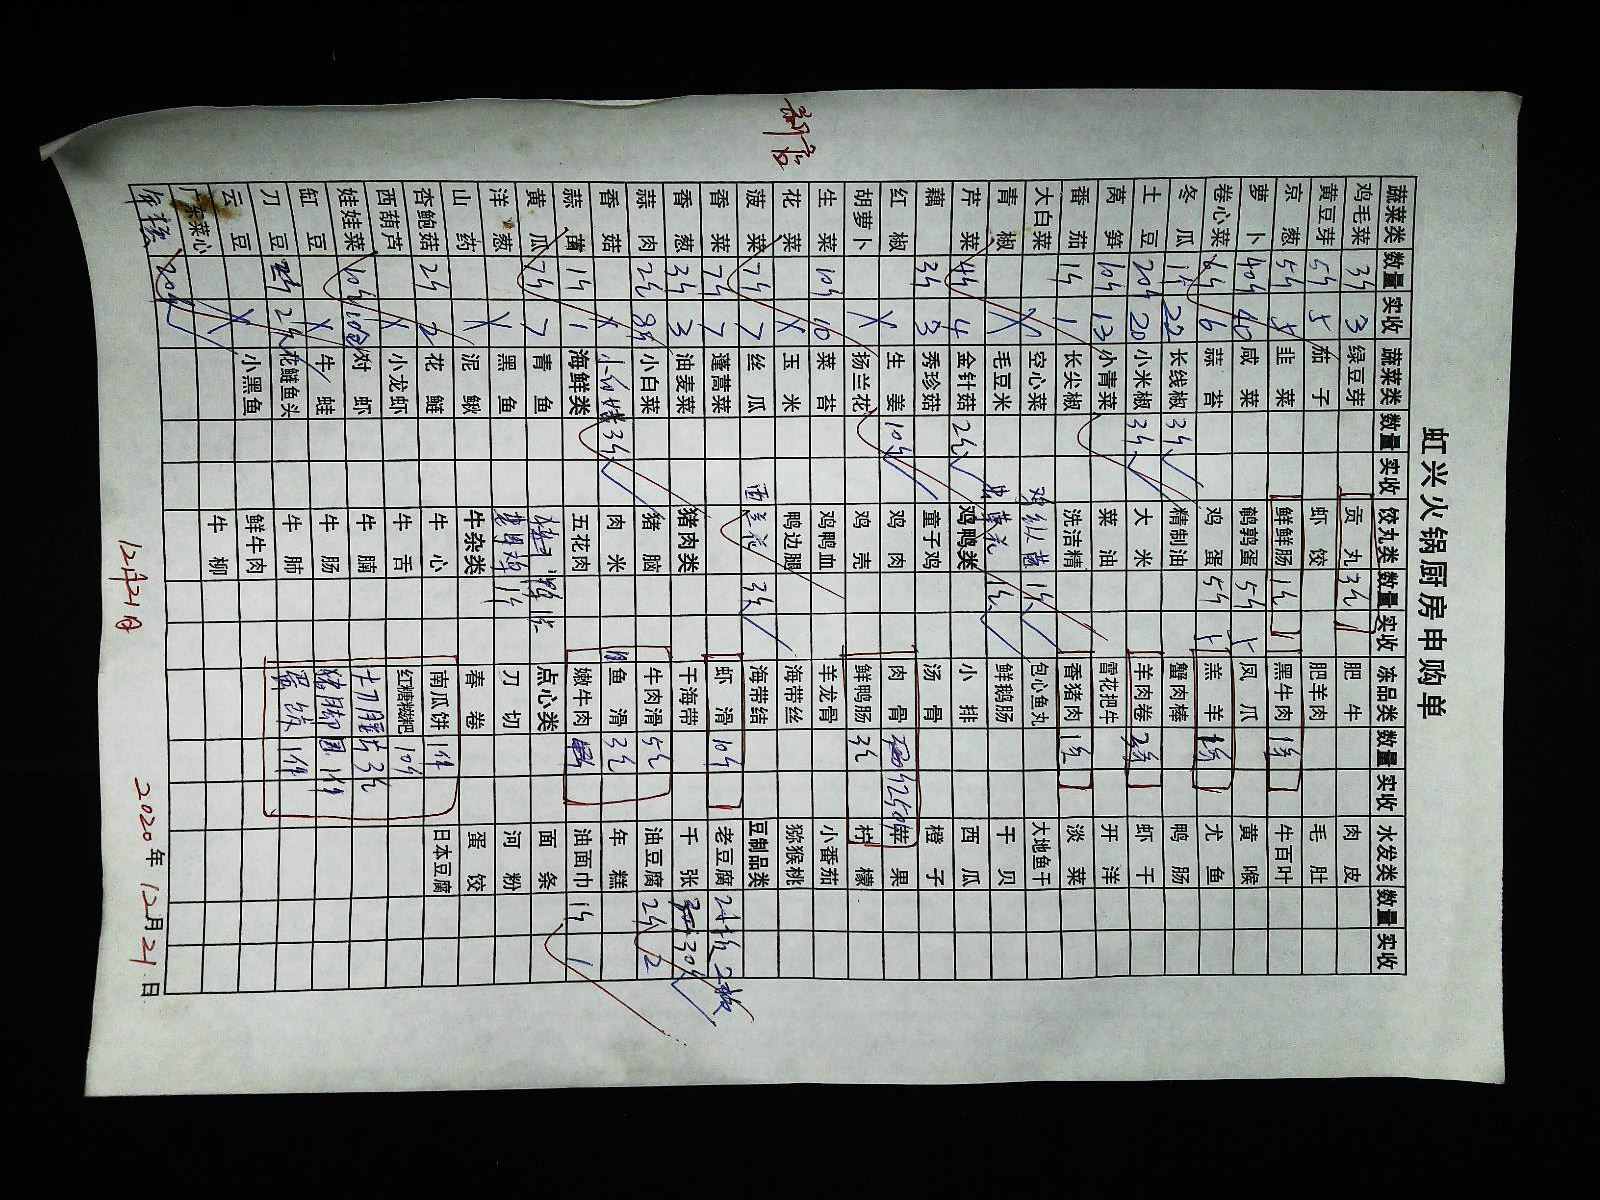 虹兴火锅厨房申购单
蔬菜类 数量 实收 蔬菜类 数量 实收 饺丸类 数量 实收 冻品类 数量 实收 水发类 数量 实收
鸡毛菜 3斤 3 绿豆芽 贡丸 3包 肥牛 肉皮
黄豆芽 5斤 5 茄子 虾饺 肥羊肉 毛肚
京葱 5斤 5 韭菜 鲜鲜肠 1包 黑牛肉 1条 牛百叶
萝卜 40斤 40 咸菜 鹌鹑蛋 5斤 凤爪 黄喉
卷心菜 6斤 6 蒜苔 鸡蛋 5斤 羔羊 尤鱼
冬瓜 22 长线椒 3斤 精制油 蟹肉棒 鸭肠
土豆 20斤 20 小米椒 3斤 大米 羊肉卷 虾干
莴笋 10斤 13 小青菜 菜油 雪花把牛 开洋
番茄 1斤 1 长尖椒 洗洁精 香猪肉 淡菜
大白菜 X 空心菜 鸡纵菌 1包 包心鱼丸 大地鱼干
青椒 X 毛豆米 虫草花 1包 鲜鹅肠 干贝
芹菜 4斤 4 金针菇 2包 鸡鸭类 小排 西瓜
藕 3斤 3 秀珍菇 童子鸡 汤骨 橙子
红椒 X 生姜 10斤 鸡肉 肉骨 苹果
胡萝卜 扬兰花 鸡壳 鲜鸭肠 3包 柠檬
生菜 10斤 10 菜苔 鸡鸭血 羊龙骨 小番茄
花菜 X 玉米 鸭边腿 海带丝 猕猴桃
菠菜 7斤 7 丝瓜 西兰花 3包 海带结 豆制品类
香菜 7斤 7 蓬蒿菜 虾滑 10斤 老豆腐 2板
香葱 3斤 3 油麦菜 猪肉类 干海带 千张 30斤
蒜肉 小白菜 猪脑 牛肉滑 5包 油豆腐 2斤 2
香菇 X 3包 肉米 鱼滑 3包 年糕
蒜苗 1斤 1 海鲜类 五花肉 嫩牛肉 油面巾 1斤 1
黄瓜 7斤 7 青鱼 点心类 面条
洋葱 X 黑鱼 刀切 河粉
山药 泥鳅 牛杂类 春卷 蛋饺
杏鲍菇 2斤 2 花鲢 牛心 南瓜饼 1件 日本豆腐
西葫芦 X 小龙虾 牛舌 红糖糍粑 10斤
娃娃菜 10包 对虾 牛腩 3包
缸豆 X 牛蛙 牛肠 1件
刀豆 2斤 花鲢鱼头 牛肺 蛋饺 1件
云豆 X 小黑鱼 鲜牛肉
广东菜心 牛柳
20斤
12月21日
2020年12月21日